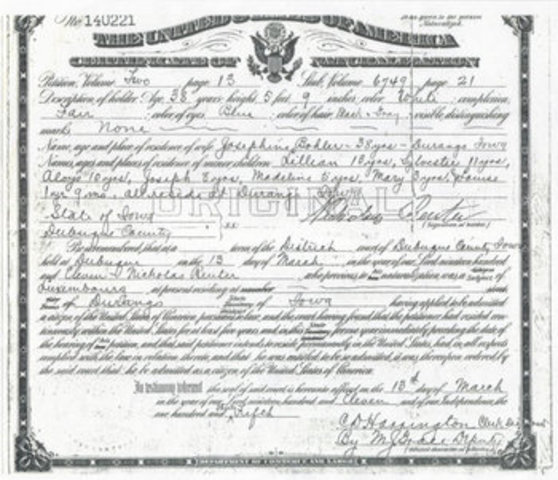 No. 140221
To be given to the person Naturalized.
THE UNITED STATES OF AMERICA
CERTIFICATE OF NATURALIZATION
Petition, Volume Two page 13 Stub, Volume 6749 page 21
Description of holder: Age, 38 years; height, 5 feet 9 inches; color, White; complexion,
Fair; color of eyes, Blue; color of hair, Black & Gray; visible distinguishing
marks, None
Name, age and place of residence of wife, Josephine Bohler - 38 yrs - Durango Iowa
Names, ages and places of residence of minor children, Lillian 13 yrs, Sylvester 11 yrs,
Aloys 10 yrs, Joseph 8 yrs, Madeline 5 yrs, Mary 3 yrs, Louise
1 yr 9 mo, all reside at Durango Iowa
ORIGINAL
State of Iowa
Dubuque County
Nicholas Reuter
(Signature of holder)
Be it remembered, that at a term of the District court of Dubuque County Iowa
held at Dubuque on the 13 day of March in the year of our Lord nineteen hundred
and Eleven Nicholas Reuter who previous to his naturalization was a subject of
Luxembourg at present residing at number street
of Durango Iowa having applied to be admitted
a citizen of the United States of America pursuant to law, and the court having found that the petitioner had resided con-
tinuously within the United States for at least five years and in this State for one year immediately preceding the date of
the hearing of his petition, and that said petitioner intends to reside permanently in the United States, had in all respects
complied with the law in relation thereto, and that he was entitled to be so admitted, it was thereupon ordered by
the said court that he be admitted as a citizen of the United States of America.
In testimony whereof the seal of said court is hereunto affixed on the 13th day of March
in the year of our Lord nineteen hundred and Eleven and of our Independence the
one hundred and thirty Fifth
C D Harrington Clerk
By M J Deputy
DEPARTMENT OF COMMERCE AND LABOR